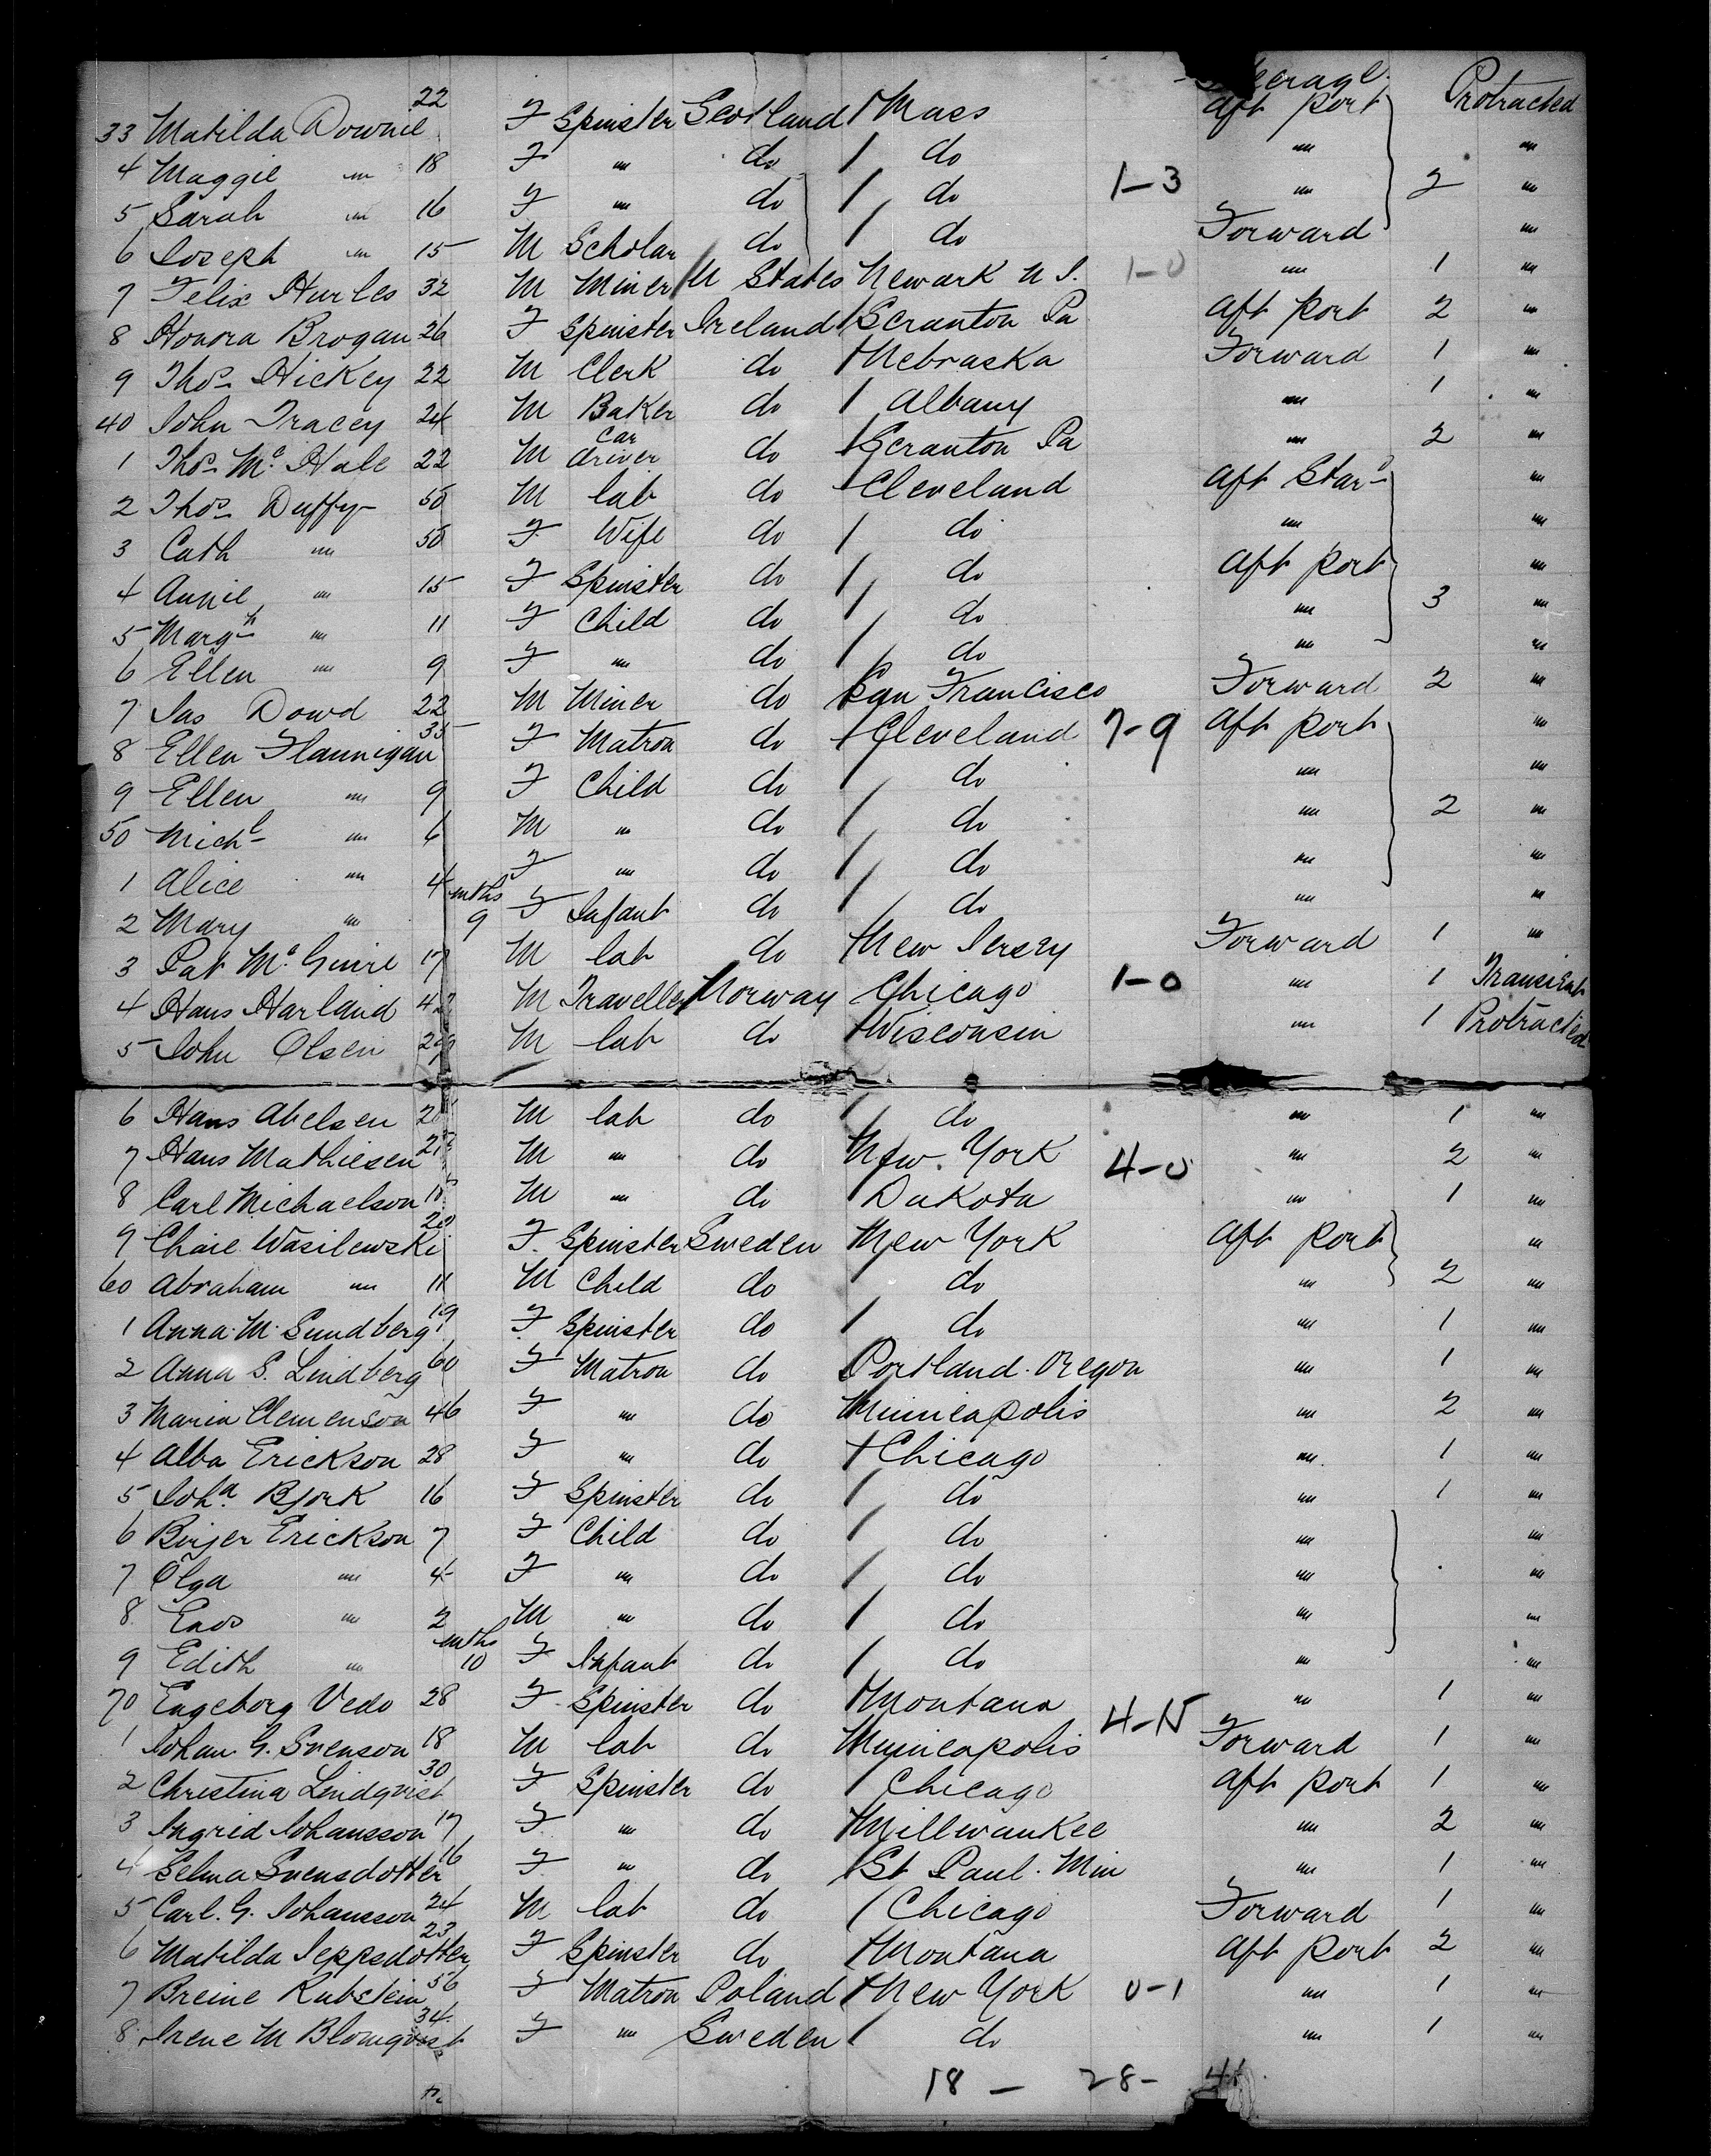 Protracted
33 Matilda Downie 22 F Spinster Scotland / Mass Aft port
4 Maggie " 18 F " do / do " "
5 Sarah " 16 F " do / do 1-3 " 2 "
6 Joseph " 15 M Scholar do / do Forward "
7 Felix Hurles 32 M Miner U States Newark N J. 1-0 " 1 "
8 Honora Brogan 26 F Spinster Ireland / Scranton Pa Aft port 2 "
9 Thos Hickey 22 M Clerk do / Nebraska Forward 1 "
40 John Tracey 24 M Baker do / Albany " 1 "
1 Thos Mc Hale 22 M Car driver do / Scranton Pa " 2 "
2 Thos Duffy 50 M lab do / Cleveland Aft Star d "
3 Cath " 50 F Wife do / do " "
4 Annie " 15 F Spinster do / do Aft port "
5 Margt " 11 F Child do / do " 3 "
6 Ellen " 9 F " do / do " "
7 Jas Dowd 22 M Miner do San Francisco Forward 2 "
8 Ellen Flannigan 35 F Matron do / Cleveland 7-9 Aft port "
9 Ellen " 9 F Child do / do " "
50 Michl " 6 M " do / do " 2 "
1 Alice " 4 F " do / do " "
2 Mary " mths 9 F Infant do / do " "
3 Pat Mc Guire 17 M lab do / New Jersey Forward 1 "
4 Hans Harland 42 M Traveller Norway Chicago 1-0 " 1 Transient
5 John Olsen M lab do / Wisconsin " 1 Protracted
6 Hans Abelsen M lab do / do " 1 "
7 Hans Mathiesen M " do New York 4-0 " 2 "
8 Carl Michaelson M " do / Dakota " 1 "
9 Chaie Wasilewski 20 F Spinster Sweden New York Aft port "
60 Abraham " 11 M Child do / do " 2 "
1 Anna M. Sundberg 19 F Spinster do / do " 1 "
2 Anna S. Lindberg 60 F Matron do Portland Oregon " 1 "
3 Maria Clemenson 46 F " do Minneapolis " 2 "
4 Alba Erickson 28 F " do / Chicago " 1 "
5 Joha Bjork 16 F Spinster do / do " 1 "
6 Birjer Erickson 7 F Child do / do " "
7 Olga " 4 F " do / do " "
8 " 2 M " do / do " "
9 Edith " mths 10 F Infant do / do " "
70 Engeborg Vedo 28 F Spinster do / Montana " 1 "
1 Johan G. Svenson 18 M lab do Minneapolis 4-15 Forward 1 "
2 Christina Lindqvist 30 F Spinster do / Chicago Aft port 1 "
3 Ingrid Johansson 17 F " do / Millwaukee " 2 "
4 Selma Svensdotter 16 F " do / St Paul. Min " 1 "
5 Carl. G. Johansson 24 M lab do / Chicago Forward 1 "
6 Matilda Jeppsdotter 23 F Spinster do / Montana Aft port 2 "
7 Breine Rubstein 56 F Matron Poland / New York 0-1 " 1 "
8 Irene M Blomqvist 34 F " Sweden / do " 1 "
18 - 28-